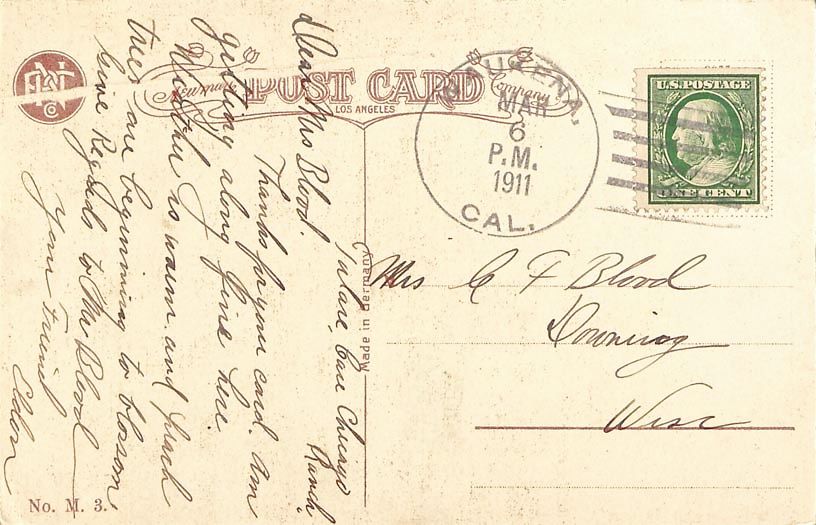 POST CARD
Newman
Company
LOS ANGELES
WAUKENA,
MAR
6
P.M.
1911
CAL.
U.S. POSTAGE
ONE CENT
Tulare, Care Chicago
Ranch.
Dear Mrs Blood.
Thanks for your card. am
getting along fine here.
Weather is warm and peach
trees are beginning to blossom
Give Regards to Mr Blood
Your Friend
Eldon
Made in Germany
Mrs C F Blood
Downing
Wisc
No. M. 3.